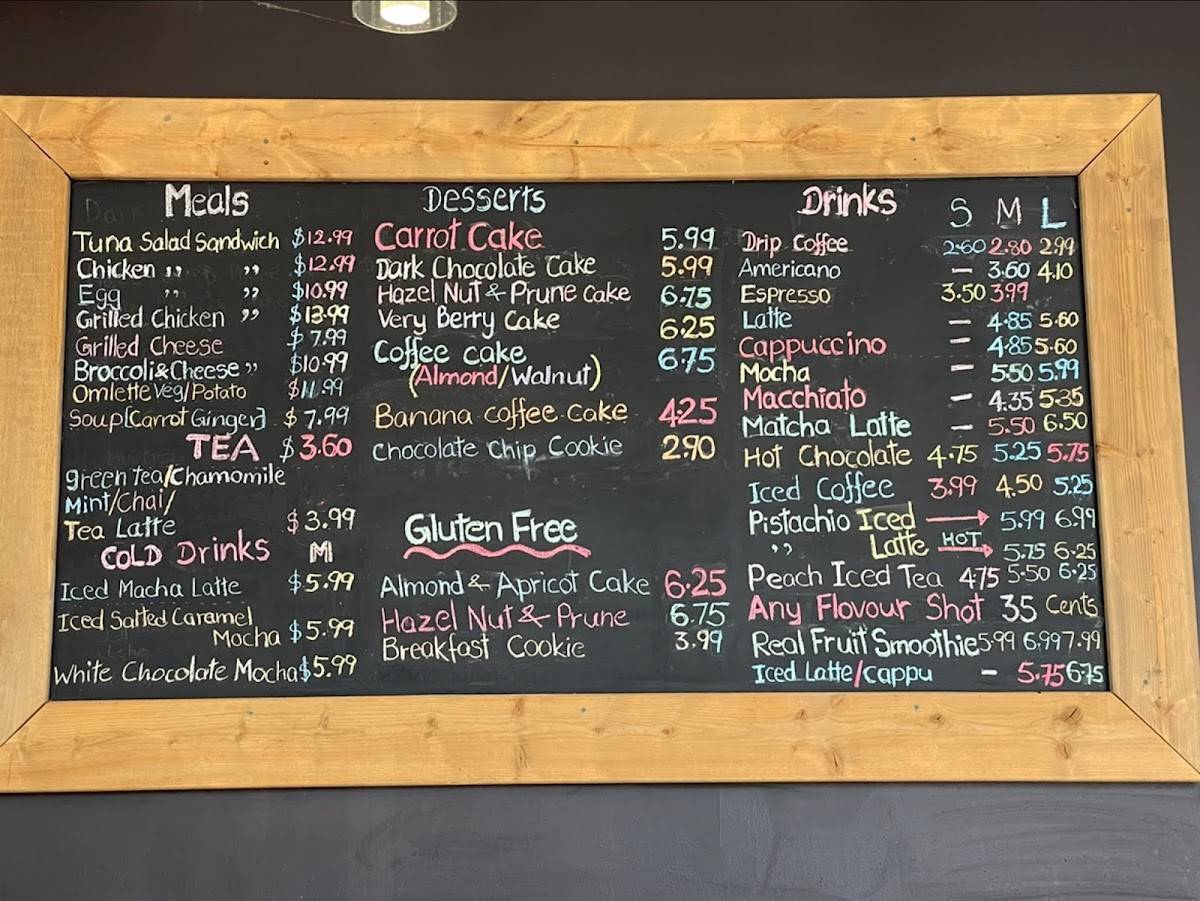 Meals
Tuna Salad Sandwich $12.99
Chicken ,, ,, $12.99
Egg ,, ,, $10.99
Grilled Chicken ,, $13.99
Grilled Cheese $7.99
Broccoli&Cheese ,, $10.99
Omlette Veg/Potato $11.99
Soup[Carrot Ginger] $7.99
TEA $3.60
green tea/Chamomile
Mint/Chai/
Tea Latte $3.99
COLD Drinks M
Iced Macha Latte $5.99
Iced Salted Caramel
Mocha $5.99
White Chocolate Mocha $5.99
Desserts
Carrot Cake 5.99
Dark Chocolate Cake 5.99
Hazel Nut & Prune Cake 6.75
Very Berry Cake 6.25
Coffee cake 6.75
(Almond/Walnut)
Banana coffee cake 4.25
Chocolate Chip Cookie 2.90
Gluten Free
Almond & Apricot Cake 6.25
Hazel Nut & Prune 6.75
Breakfast Cookie 3.99
Drinks S M L
Drip Coffee 2.60 2.80 2.99
Americano — 3.60 4.10
Espresso 3.50 3.99
Latte — 4.85 5.60
Cappuccino — 4.85 5.60
Mocha — 5.50 5.99
Macchiato — 4.35 5.35
Matcha Latte — 5.50 6.50
Hot Chocolate 4.75 5.25 5.75
Iced Coffee 3.99 4.50 5.25
Pistachio Iced → 5.99 6.99
,, Latte HOT → 5.75 6.25
Peach Iced Tea 4.75 5.50 6.25
Any Flavour Shot 35 Cents
Real Fruit Smoothie 5.99 6.99 7.99
Iced Latte/cappu — 5.75 6.75